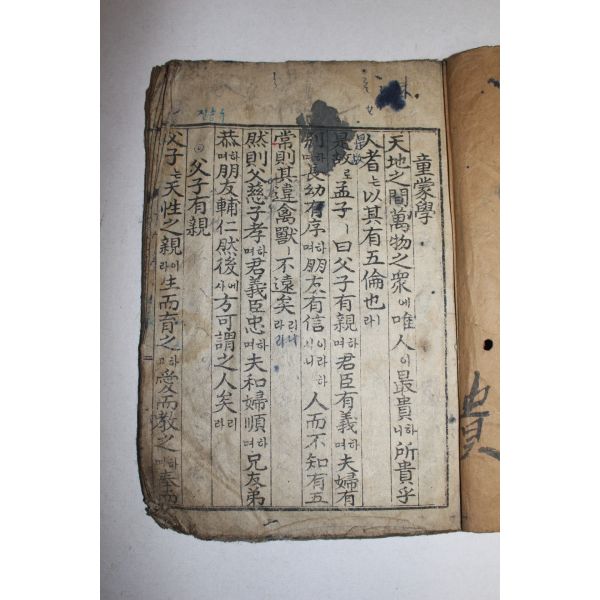 童蒙學
天地之間萬物之衆에唯人이最貴하니所貴乎
人者는以其有五倫也라
是故로孟子ㅣ曰父子有親하며君臣有義하며夫婦有
別하며長幼有序하며朋友有信이라하시니人而不知有五
常則其違禽獸ㅣ不遠矣리라
然則父慈子孝하며君義臣忠하며夫和婦順하며兄友弟
恭하며朋友輔仁然後에사方可謂之人矣리라
父子有親
父子는天性之親이라生而育之하고愛而敎之하며奉而
貴